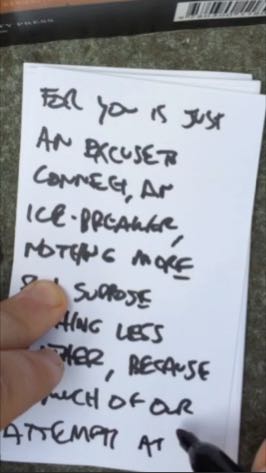 Y PRESS
FOR YOU IS JUST
AN EXCUSE TO
CONNECT, AN
ICE-BREAKER,
NOTHING MORE
SUPPOSE
LESS
, BECAUSE
MUCH OF OUR
ATTEMPT AT